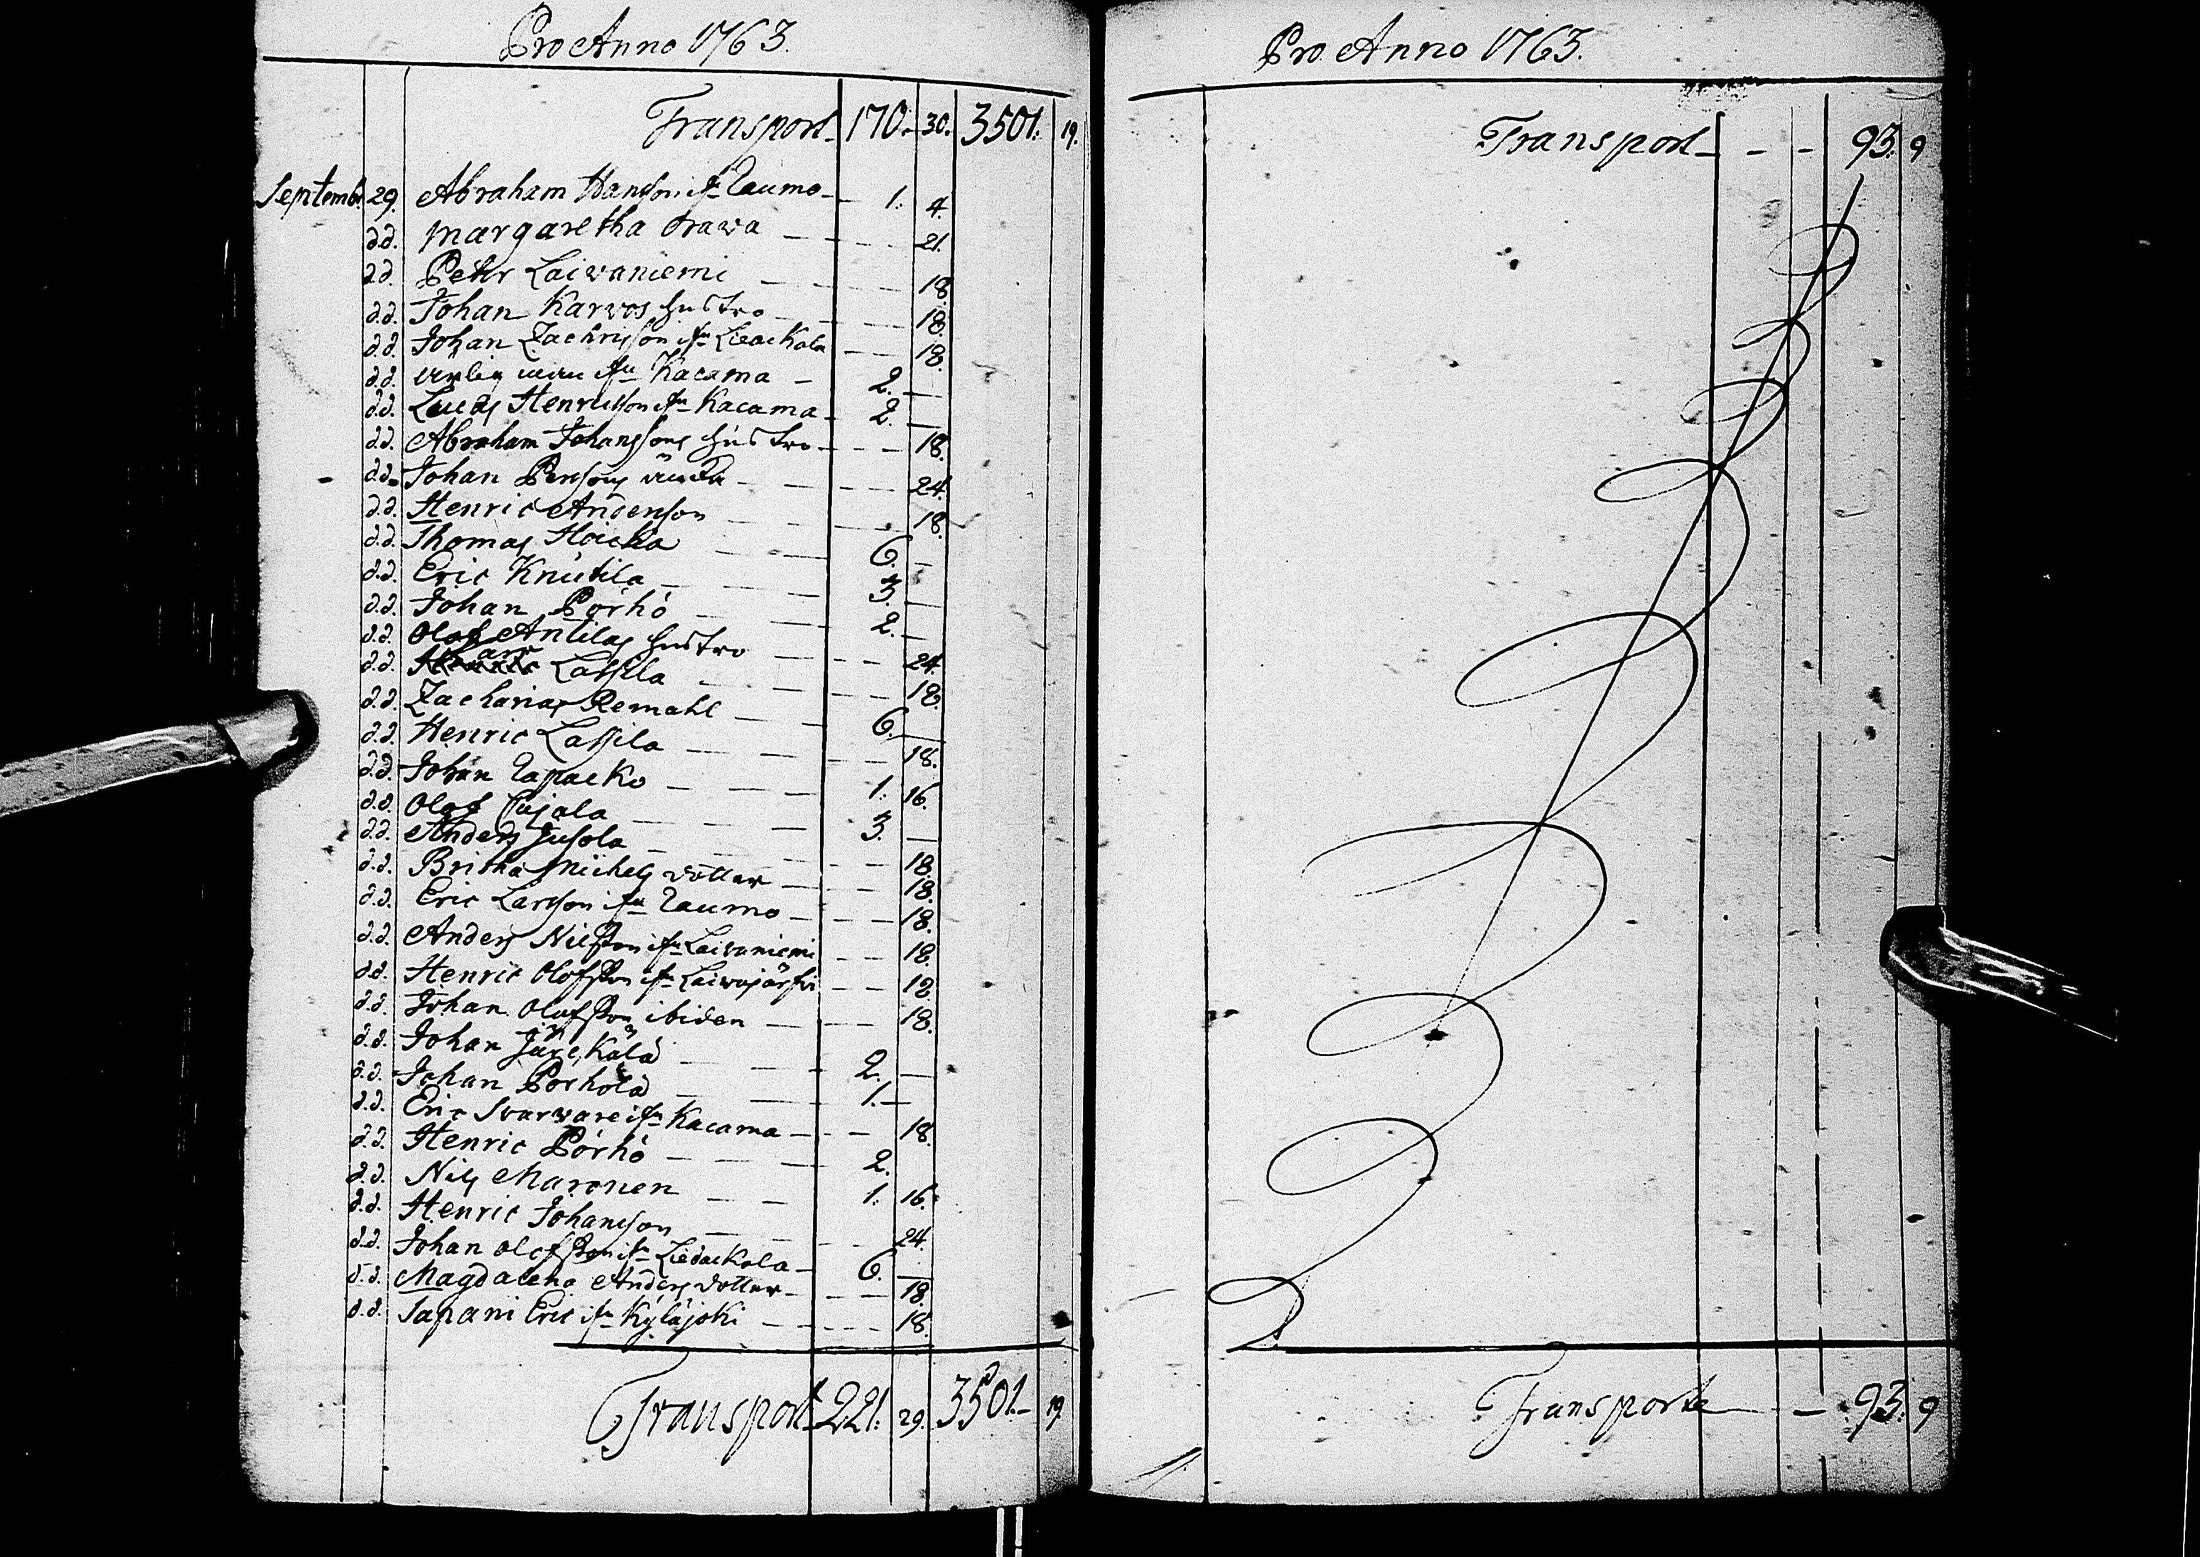 Pro Anno 1763.
Transport 170. 30. 3501. 19.
Septemb. 29. Abraham Hansson ifr Raumo 1. 4.
d.d. Margaretha Orawa 21.
d.d. Petter Laiwaniemi 18.
d.d. Johan Karwos hustro 18.
d.d. Johan Zachrisson ifrn Liedackala 18.
d.d. ifrn Kacama 2. —
d.d. Lucas Henricsson ifrn Kacama 2. —
d.d. Abraham Johanssons hustro 18.
d.d. Johan Perssons 24.
d.d. Henric Andersson 18.
d.d. Thomas Hoicka 6. —
d.d. Eric Knutila 3. —
d.d. Johan Pörhö 2. —
d.d. Olof Antilas hustro 24.
d.d. Lassila 18.
d.d. Zacharias Remahl 6. —
d.d. Henric Lassila 18.
d.d. Johan 1. 16.
d.d. Olof 3. —
d.d. Anders Jusola 18.
d.d. Britha Michels dotter 18.
d.d. Eric Larsson ifrn Raumo 18.
d.d. Anders Nilsson ifrn Laivaniemi 18.
d.d. Henric Olofsson ifrn Laiwajärfvi 12.
d.d. Johan Olofsson ibidem 18.
d.d. Johan 2. —
d.d. Johan 1. —
d.d. Eric Svarvare ifrn Kacama 18.
d.d. Henric Pörhö 2.
d.d. Nils Maronen 1. 16.
d.d. Henric Johansson 24.
d.d. Johan Olofsson ifrn Liedackala 6. —
d.d. Magdalena Anders dotter 18.
d.d. Tapani Eric ifrn Kyläjoki 18.
Transport 221. 29. 3501. 19
Pro Anno 1763.
Transport 93. 9
Transporte 93. 9